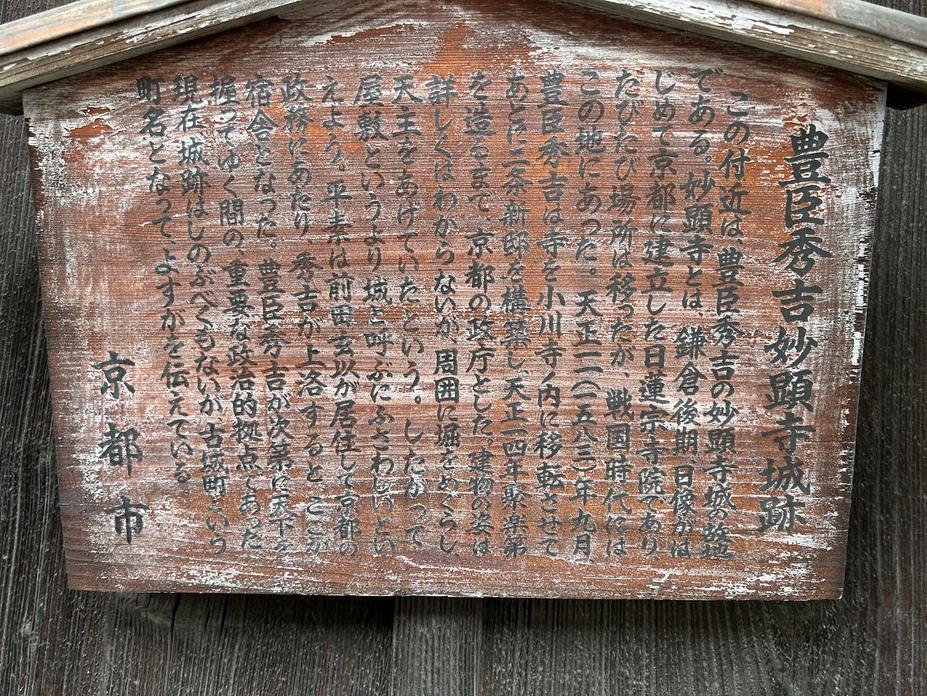 豊臣秀吉妙顕寺城跡
この付近は、豊臣秀吉の妙顕寺城の故地
である。妙顕寺とは、鎌倉後期、日像がは
じめて京都に建立した日蓮宗寺院であり
たびたび場所は移ったが、戦国時代には
この地にあった。天正一一(一五八三)年九月、
豊臣秀吉は寺を小川寺ノ内に移転させて
あとに二条新邸を構築し、天正一四年聚楽第
を造るまで、京都の政庁とした。建物の姿は
詳しくはわからないが、周囲に堀をめぐらし
天主をあげていたという。したがって
屋敷というより城と呼ぶにふさわしいとい
えよう。平素は前田玄以が居住して京都の
政務にあたり、秀吉が上洛すると、ここが
宿舎となった。豊臣秀吉が次第に天下を
握ってゆく間の、重要な政治的拠点であった
現在、城跡はしのぶべくもないが、古城町という
町名となって、よすがを伝えている。
京都市